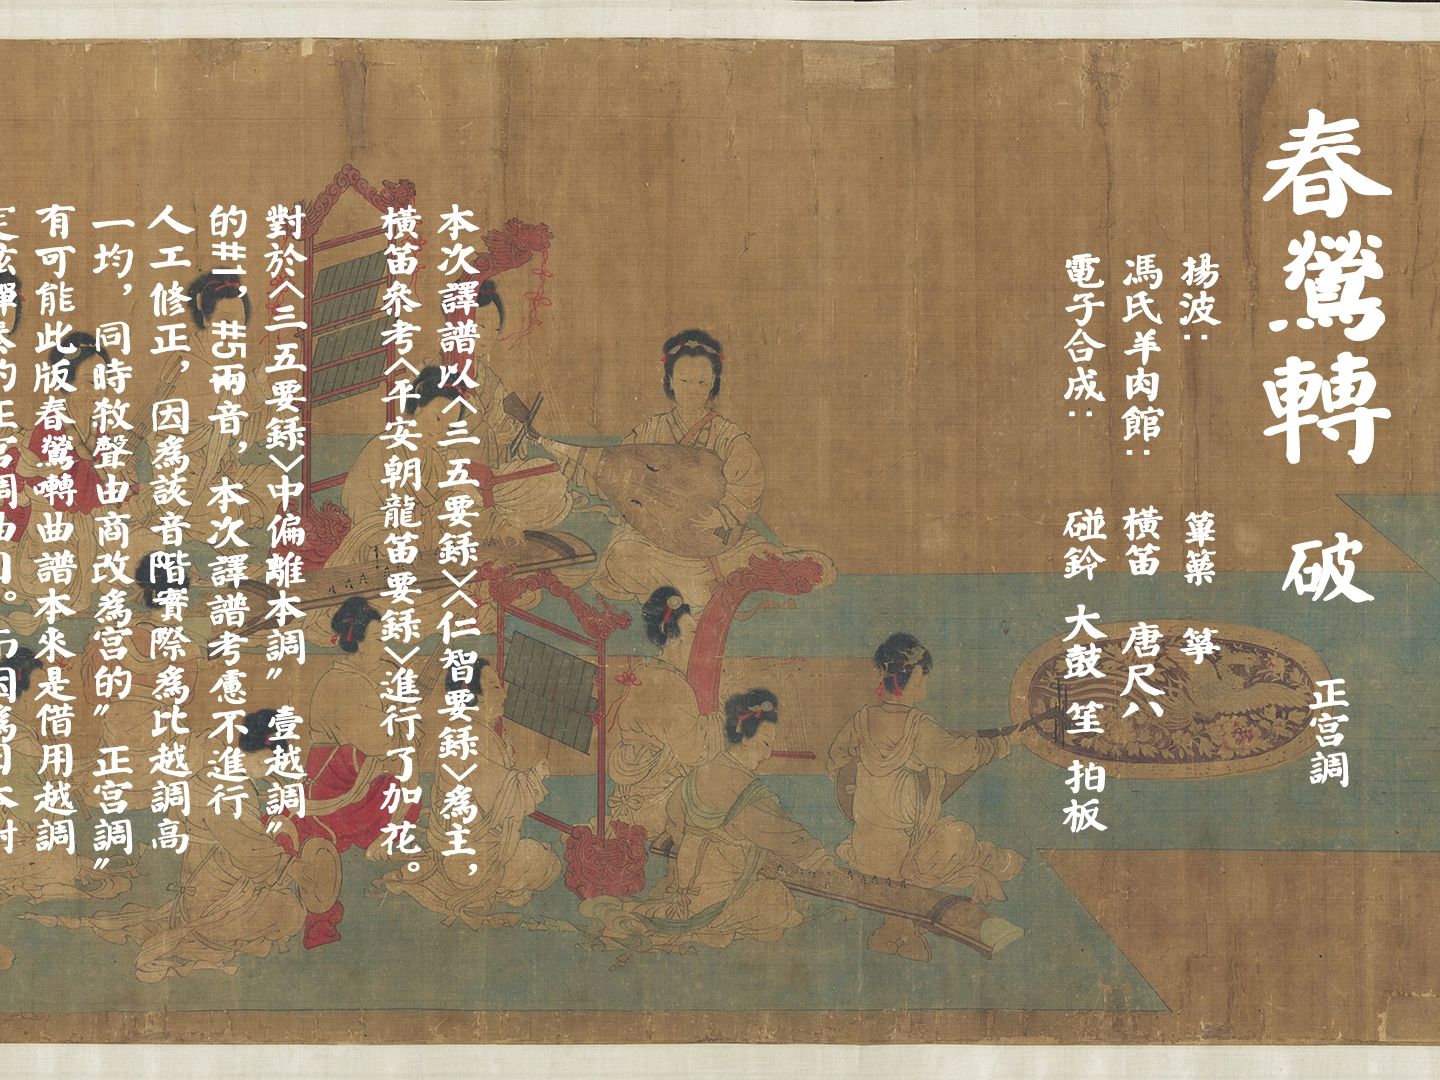 春鶯轉 破 正宮調
揚波： 篳篥 箏
馮氏羊肉館： 橫笛 唐尺八
電子合成： 碰鈴 大鼓 笙 拍板
本次譯譜以〈三五要錄〉〈仁智要錄〉為主，
橫笛參考〈平安朝龍笛要錄〉進行了加花。
對於〈三五要錄〉中偏離本調〞壹越調〞
的#1，#5兩音，本次譯譜考慮不進行
人工修正，因為該音階實際為比越調高
一均，同時殺聲由商改為宮的〞正宮調〞
有可能此版春鶯囀曲譜本來是借用越調